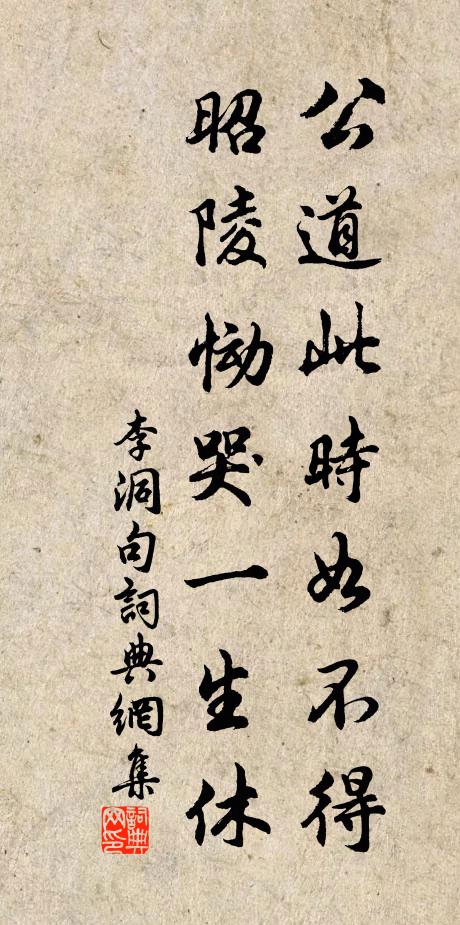 公道此時如不得
昭陵慟哭一生休
李洞句詞典網集
詞典網印